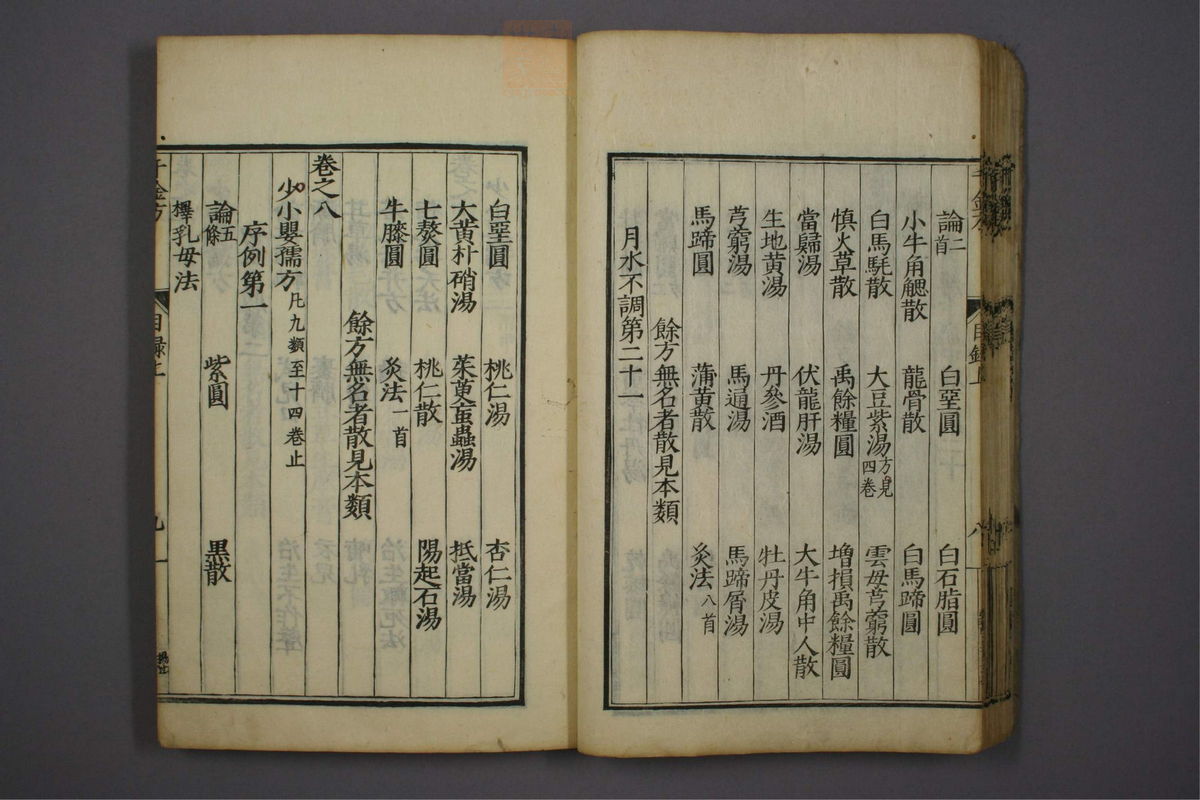 論二首 白堊圓 白石脂圓
小牛角䚡散 龍骨散 白馬蹄圓
白馬駞散 大豆紫湯方見四卷 雲母芎藭散
慎火草散 禹餘糧圓 增損禹餘糧圓
當歸湯 伏龍肝湯 大牛角中人散
生地黄湯 丹參酒 牡丹皮湯
芎藭湯 馬通湯 馬蹄屑湯
馬蹄圓 蒲黄散 灸法八首
餘方無名者散見本類
月水不調第二十一
白堊圓 桃仁湯 杏仁湯
大黄朴硝湯 茱萸䖟蟲湯 抵當湯
七熬圓 桃仁散 陽起石湯
牛膝圓 灸法一首
餘方無名者散見本類
卷之八
少小嬰孺方凡九類至十四卷止
序例第一
論五條 紫圓 黒散
擇乳母法
千金方 目録上 九